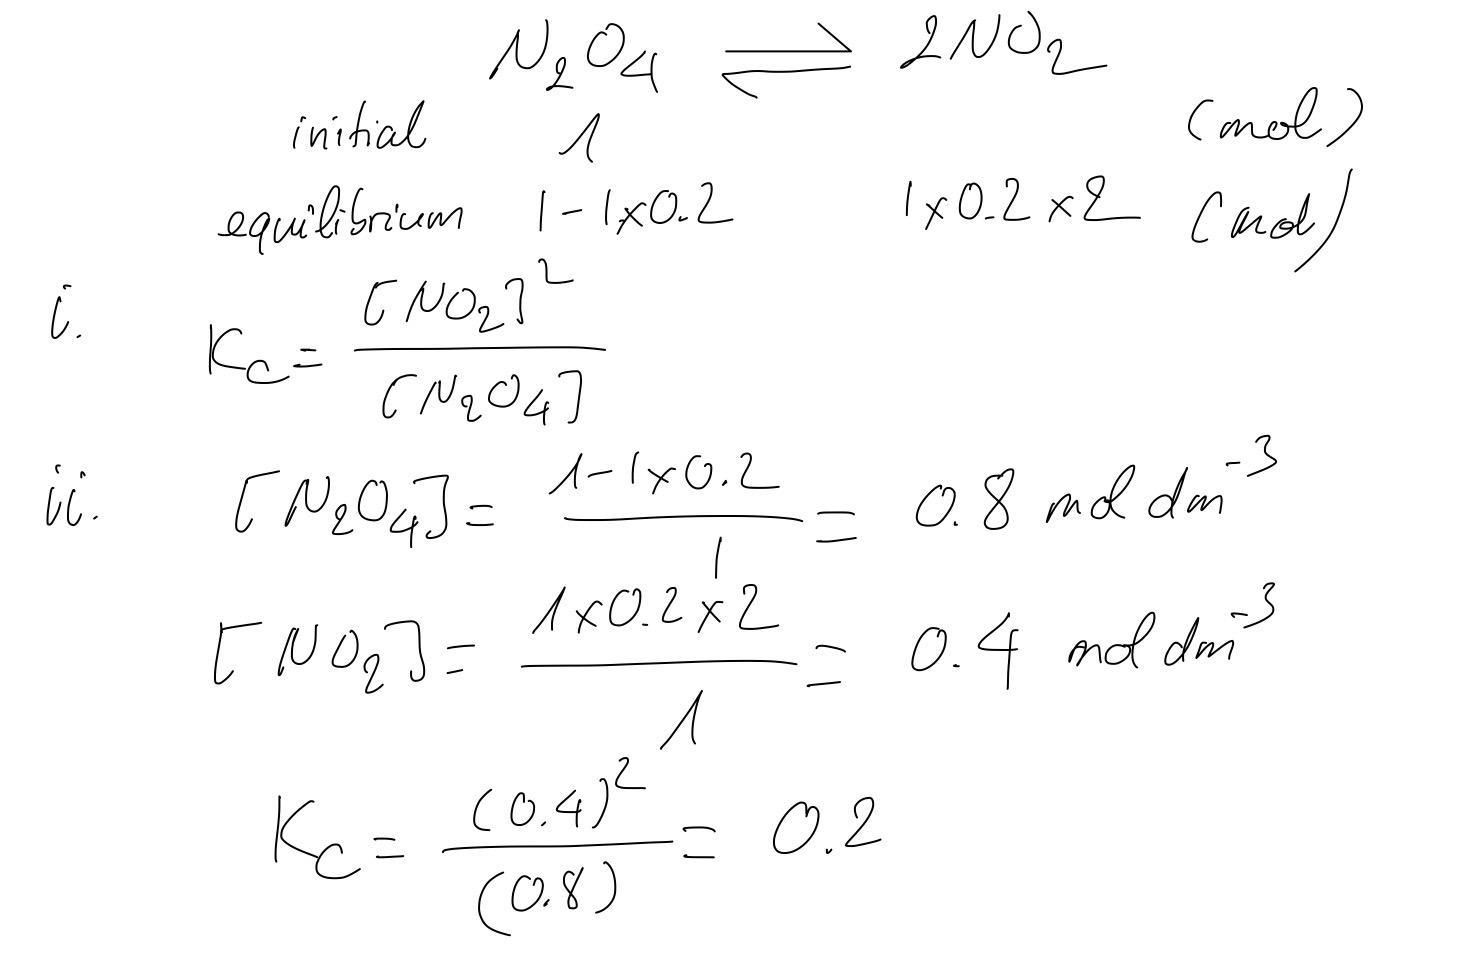 N₂O₄ ⇌ 2NO₂
initial 1 (mol)
equilibrium 1-1×0.2 1×0.2×2 (mol)
i. Kc = [NO₂]² / [N₂O₄]
ii. [N₂O₄] = (1-1×0.2) / 1 = 0.8 mol dm⁻³
[NO₂] = (1×0.2×2) / 1 = 0.4 mol dm⁻³
Kc = (0.4)² / (0.8) = 0.2